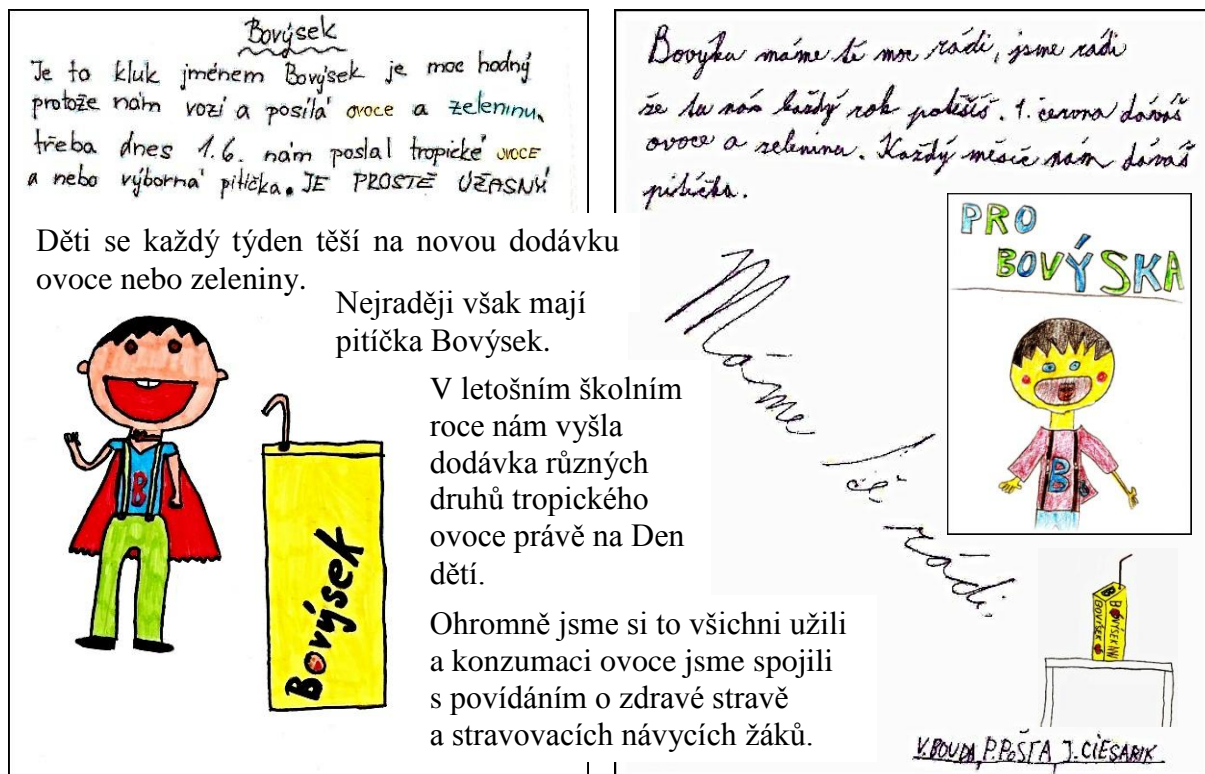 Bovýsek
Je to kluk jménem Bovýsek je moc hodný
protože nám vozí a posílá ovoce a zeleninu,
třeba dnes 1.6. nám poslal tropické ovoce
a nebo výborná pitíčka. JE PROSTĚ ÚŽASNÝ
Děti se každý týden těší na novou dodávku
ovoce nebo zeleniny.
Nejraději však mají
pitíčka Bovýsek.
V letošním školním
roce nám vyšla
dodávka různých
druhů tropického
ovoce právě na Den
dětí.
Ohromně jsme si to všichni užili
a konzumaci ovoce jsme spojili
s povídáním o zdravé stravě
a stravovacích návycích žáků.
B
Bovýsek
Bovýku máme tě moc rádi, jsme rádi
že tu nás každý rok potěšíš. 1. června dáváš
ovoce a zelenina. Každý měsíc nám dáváš
pitíčka.
PRO
BOVÝSKA
B
Máme tě rádi.
BOVÝSEK
V. BOUDA, P. POŠTA, J. CIESARIK